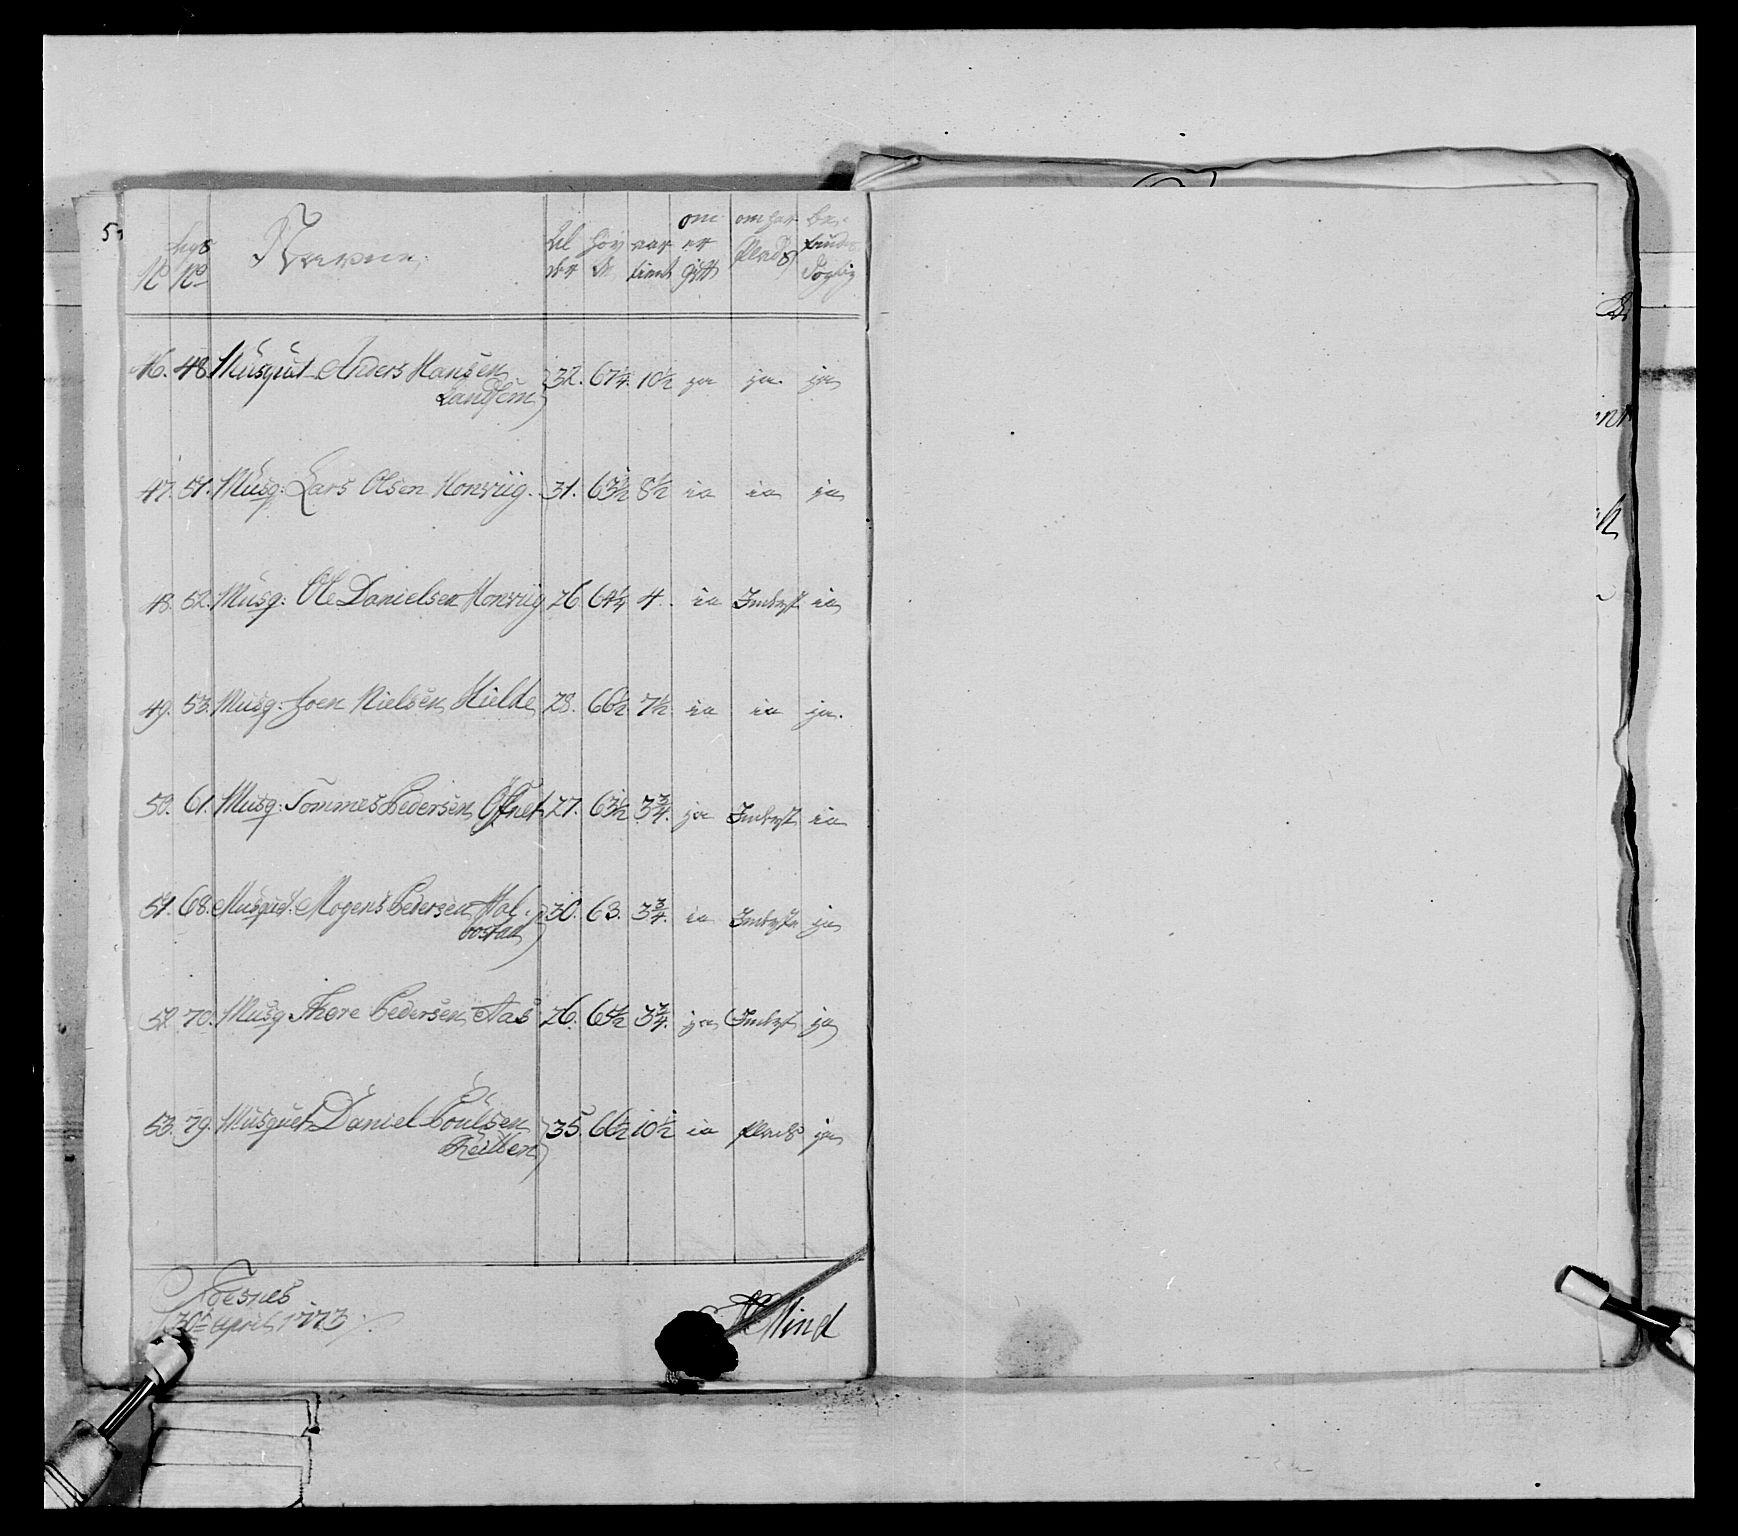 Legs
No No Navne
Al der
Høy de
var tient
om er gift
om har Plads
be finde Dygtig
46. 48 Musquet Anders Hansen Landsem 32. 67¼ 10½ ja ja. ja
47. 51. Musq: Lars Olsen Monviig. 31. 63½ 8½ ia ia ja
48. 52. Musq: Ole Danielsen Monviig 26 64¼ 4. ia Inderst ia
49. 53. Musq: Joen Nielsen Hielde 28. 66½ 7½ ia ia ja.
50. 61. Musq: Tommes Pedersen 27. 63½ 3¾. ja Inderst ia
51. 68. Musquet. Mogens Pedersen Hol-
bostad 30. 63. 3¾. ia Inderst ja
52. 70. Musq Thore Pedersen Aas 26. 65½ 3¾. ja Inderst ja
53. 79. Musquet Daniel Poulsen
Reitten 35. 66½ 10½ ia Plads ja
30te april 1773